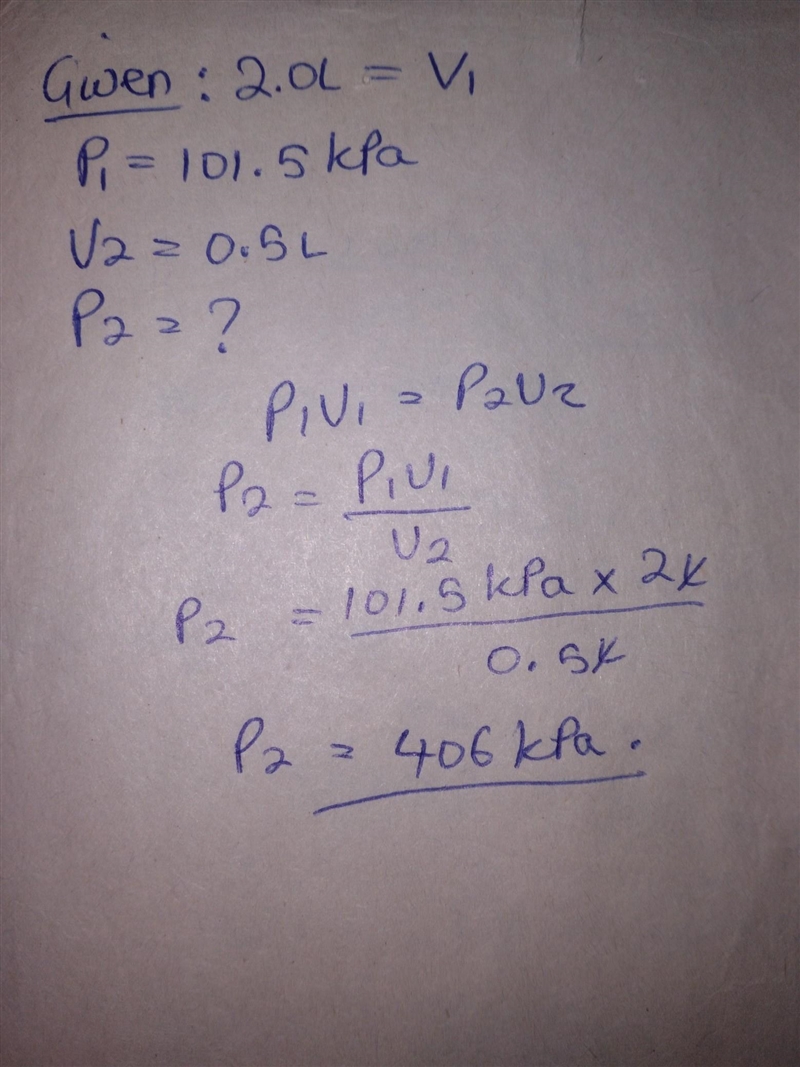 Given : 2.0L = V1
P1 = 101.5 kPa
V2 = 0.5L
P2 = ?
P1V1 = P2V2
P2 = P1V1
V2
P2 = 101.5 kPa x 2L
0.5L
P2 = 406 kPa.